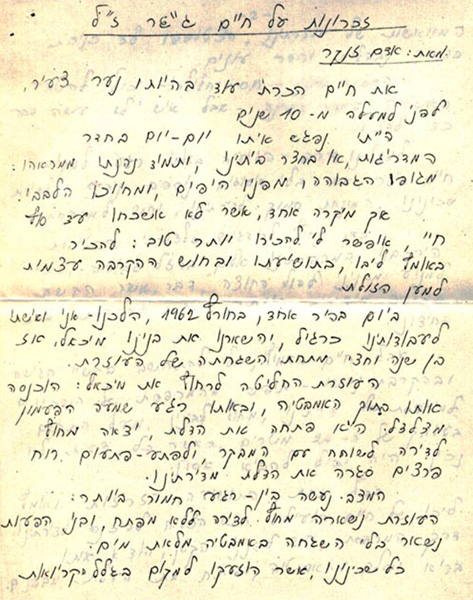 זכרונות על חיים גישר ז"ל
מאת: אדם זנקר
את חיים הכרתי עוד בהיותו נער צעיר,
לפני למעלה מ-10 שנים
הייתי נפגש איתו יום-יום בחדר
המדריגות, או בחצר ביתינו, ותמיד נהנתי ממראהו:
מגופו הגבוהה, מפניו היפים, ומחיוכו הלבבי.
אך מיקרה אחד, אשר לא אשכחו עד סוף
חיי, איפשר לי להכירו יותר טוב: להכיר
באומץ ליבו, בתושיעתו ובחוש ההקרבה עצמית
למען הזולת.
ביום בהיר אחד, בחורף 1962, הלכנו- אני ואישתי
לעבודותינו כרגיל, והשארנו את בנינו מיכאל, אז
בן שנה וחצי מתחת השגחתה של העוזרת.
העוזרת החליטה לרחוץ את מיכאל: הוכנסה
אותו בתוך האמבטיה, ובאותו רגע שמעה הפעמון
מצלצל. היא פתחה את הדלת, יצאה מחוץ
לדירה לשוחח עם המבקר, ולפתע-פתעום רוח
פרצים סגרה את הדלת מדירתינו.
המצב נעשה בין-רגע חמור ביותר:
העוזרת נשארה מחוץ לדירה ללא מפתח, ובני הפעוט
נשאר בלי השגחה באמבטיה מלאת מים.
כל שכינינו, אשר הוזעקו למקום בגלל קריאות